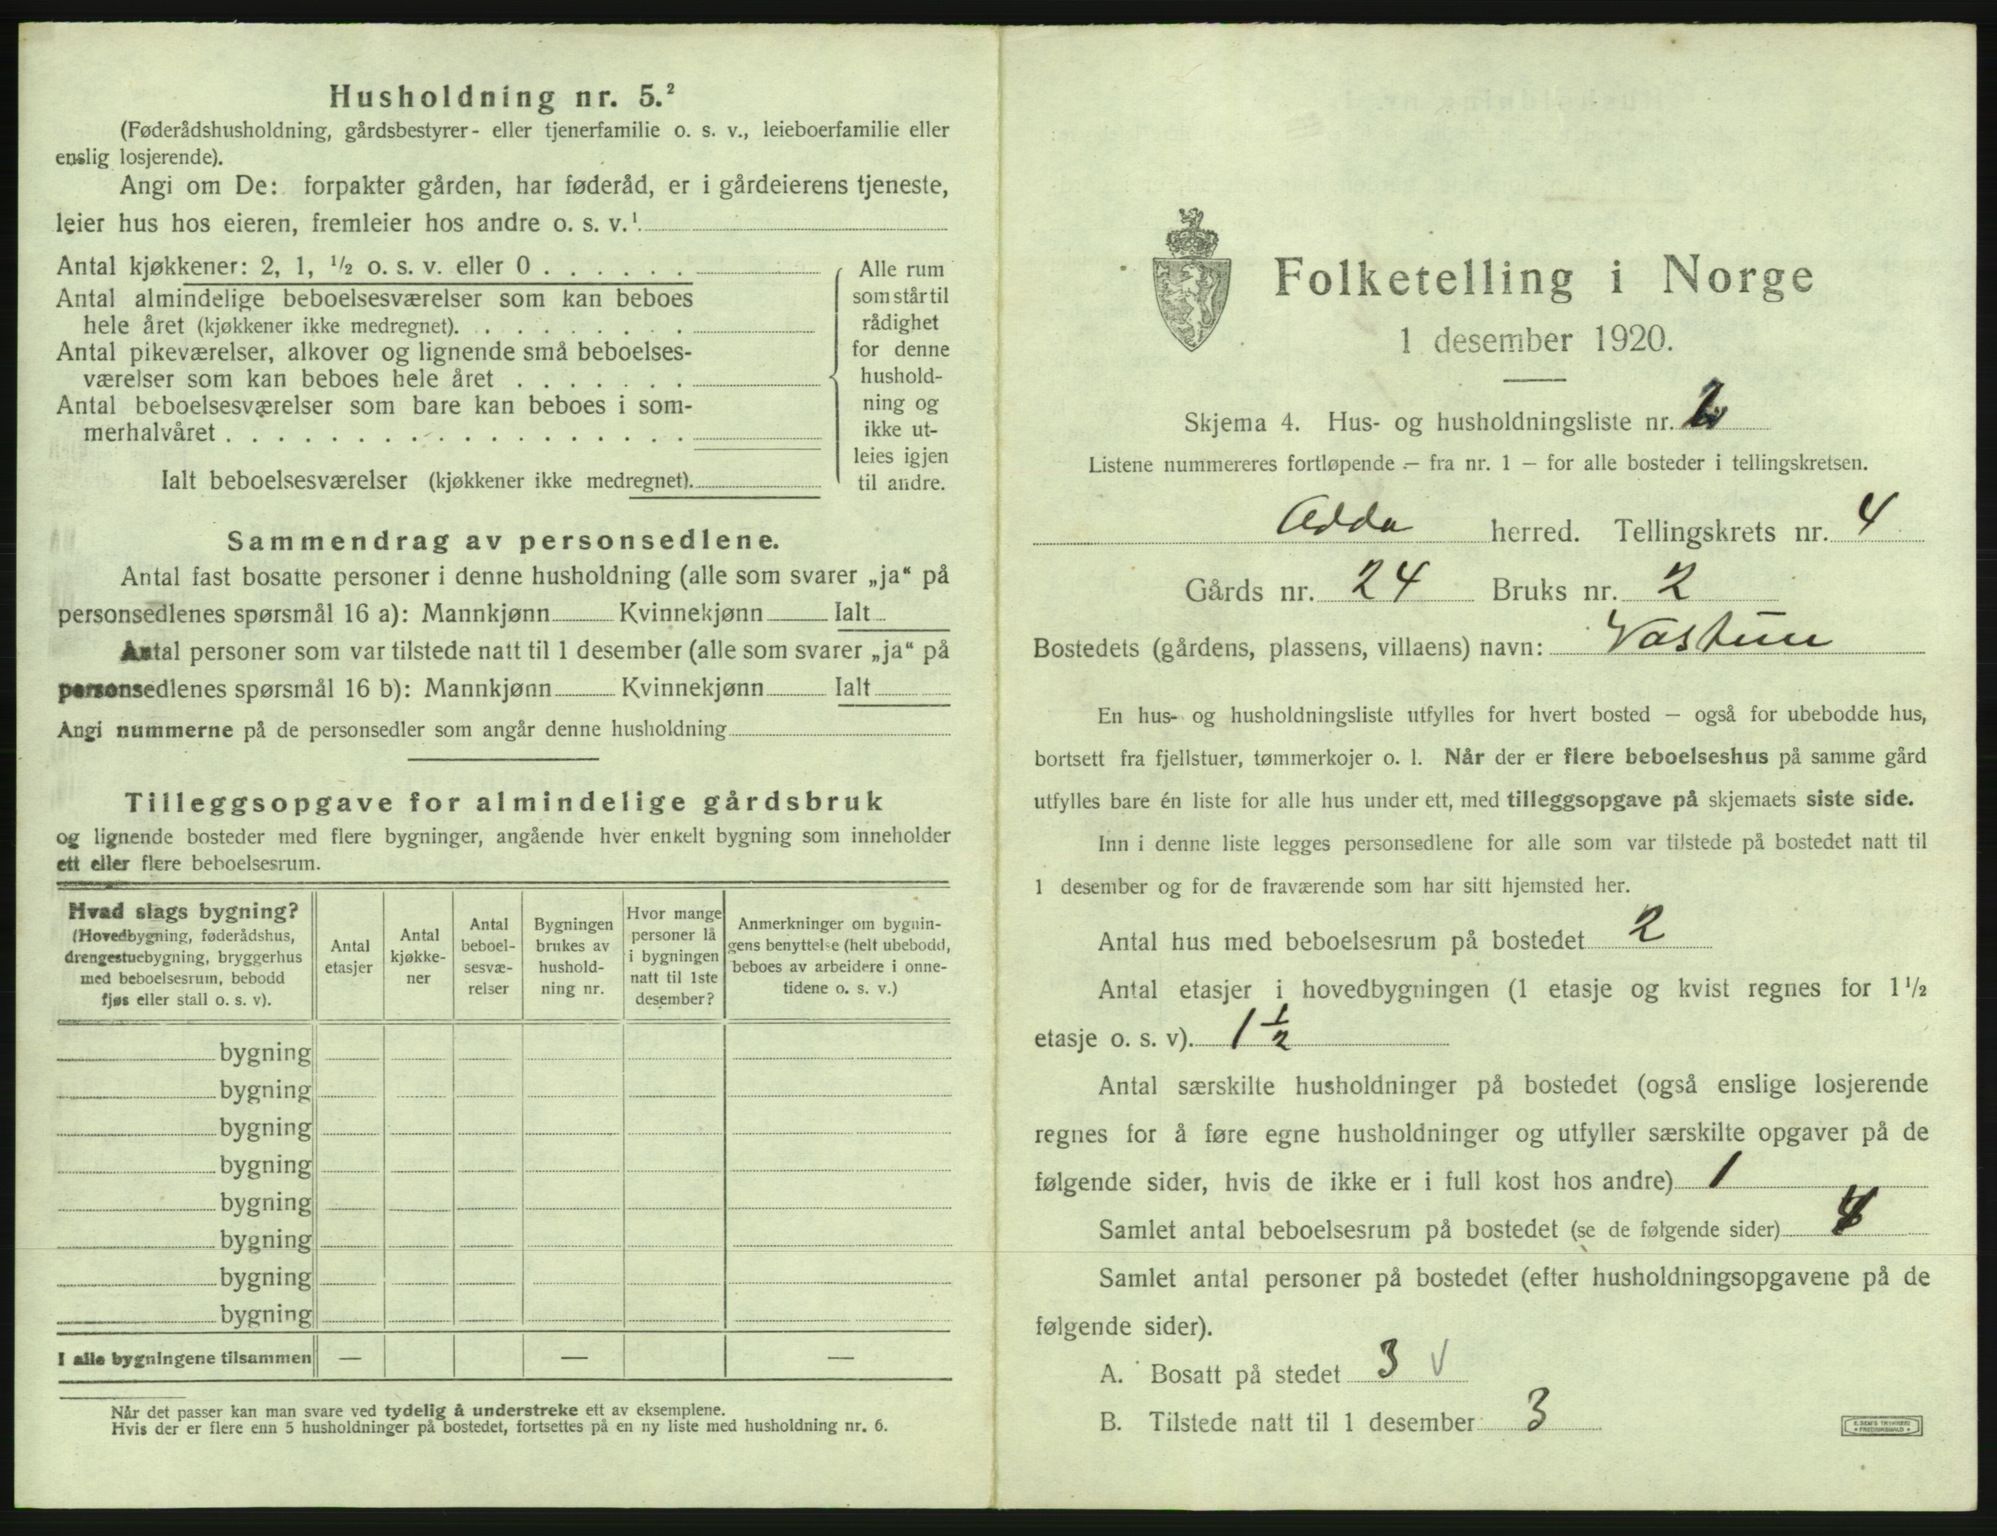 Husholdning nr. 5.²
(Føderådshusholdning, gårdsbestyrer- eller tjenerfamilie o. s. v., leieboerfamilie eller
enslig losjerende).
Angi om De: forpakter gården, har føderåd, er i gårdeierens tjeneste,
leier hus hos eieren, fremleier hos andre o. s. v.¹
Antal kjøkkener: 2, 1, ½ o. s. v. eller 0 . . . . . .
Antal almindelige beboelsesværelser som kan beboes
hele året (kjøkkener ikke medregnet). . . . . . . . .
Antal pikeværelser, alkover og lignende små beboelses-
værelser som kan beboes hele året . . . . . . .
Antal beboelsesværelser som bare kan beboes i som-
merhalvåret . . . . . . . . . . . . . . . . . .
Ialt beboelsesværelser (kjøkkener ikke medregnet).
Alle rum
som står til
rådighet
for denne
hushold-
ning og
ikke ut-
leies igjen
til andre.
Sammendrag av personsedlene.
Antal fast bosatte personer i denne husholdning (alle som svarer „ja“ på
personsedlenes spørsmål 16 a): Mannkjønn Kvinnekjønn Ialt
Antal personer som var tilstede natt til 1 desember (alle som svarer „ja“ på
personsedlenes spørsmål 16 b): Mannkjønn Kvinnekjønn Ialt
Angi nummerne på de personsedler som angår denne husholdning
Tilleggsopgave for almindelige gårdsbruk
og lignende bosteder med flere bygninger, angående hver enkelt bygning som inneholder
ett eller flere beboelsesrum.
Hvad slags bygning?
(Hovedbygning, føderådshus,
drengestuebygning, bryggerhus
med beboelsesrum, bebodd
fjøs eller stall o. s. v).
Antal
etasjer
Antal
kjøkke-
ner
Antal
beboel-
sesvæ-
relser
Bygningen
brukes av
hushold-
ning nr.
Hvor mange
personer lå
i bygningen
natt til 1ste
desember?
Anmerkninger om bygnin-
gens benyttelse (helt ubebodd,
beboes av arbeidere i onne-
tidene o. s. v.)
bygning
bygning
bygning
bygning
bygning
bygning
bygning
bygning
I alle bygningene tilsammen — — —
Når det passer kan man svare ved tydelig å understreke ett av eksemplene.
Hvis der er flere enn 5 husholdninger på bostedet, fortsettes på en ny liste med husholdning nr. 6.
Folketelling i Norge
1 desember 1920.
Skjema 4. Hus- og husholdningsliste nr. 2
Listene nummereres fortløpende — fra nr. 1 — for alle bosteder i tellingskretsen.
Odda herred. Tellingskrets nr. 4
Gårds nr. 24 Bruks nr. 2
Bostedets (gårdens, plassens, villaens) navn: Vastun
En hus- og husholdningsliste utfylles for hvert bosted — også for ubebodde hus,
bortsett fra fjellstuer, tømmerkojer o. l. Når der er flere beboelseshus på samme gård
utfylles bare én liste for alle hus under ett, med tilleggsopgave på skjemaets siste side.
Inn i denne liste legges personsedlene for alle som var tilstede på bostedet natt til
1 desember og for de fraværende som har sitt hjemsted her.
Antal hus med beboelsesrum på bostedet 2
Antal etasjer i hovedbygningen (1 etasje og kvist regnes for 1½
etasje o. s. v). 1½
Antal særskilte husholdninger på bostedet (også enslige losjerende
regnes for å føre egne husholdninger og utfyller særskilte opgaver på de
følgende sider, hvis de ikke er i full kost hos andre) 1
Samlet antal beboelsesrum på bostedet (se de følgende sider)
Samlet antal personer på bostedet (efter husholdningsopgavene på de
følgende sider).
A. Bosatt på stedet 3 V
B. Tilstede natt til 1 desember 3